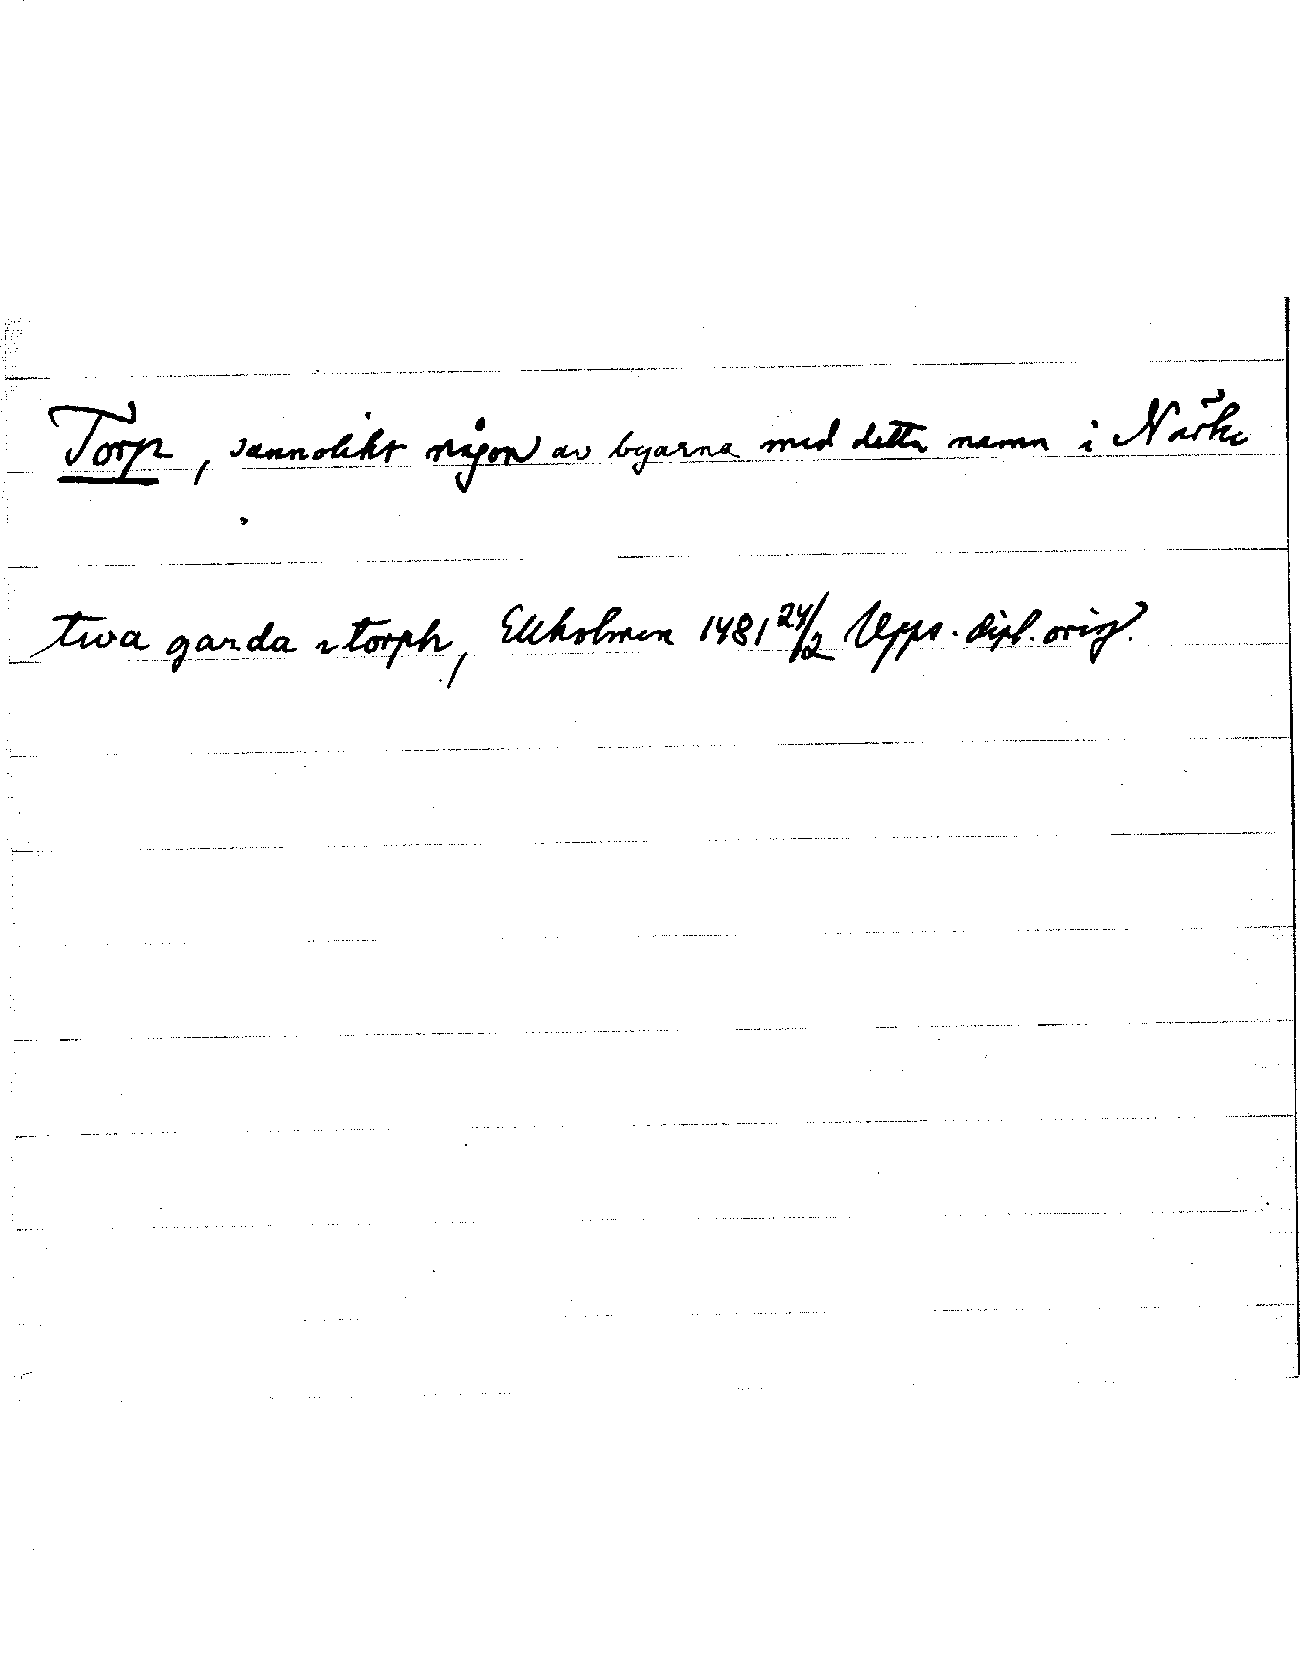 Torp, sannolikt någon av byarna med detta namn i Närke
twa garda i torph, Ekholmen 1481 24/2 Upps. dipl. orig.